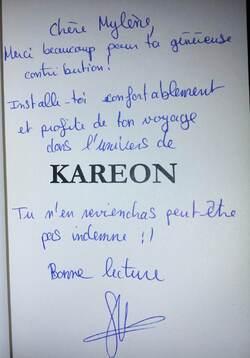 Chère Mylène,
Merci beaucoup pour ta généreuse
contribution !
Installe-toi confortablement
et profite de ton voyage
dans l'univers de
KAREON
Tu n'en reviendras peut-être
pas indemne :)
Bonne lecture